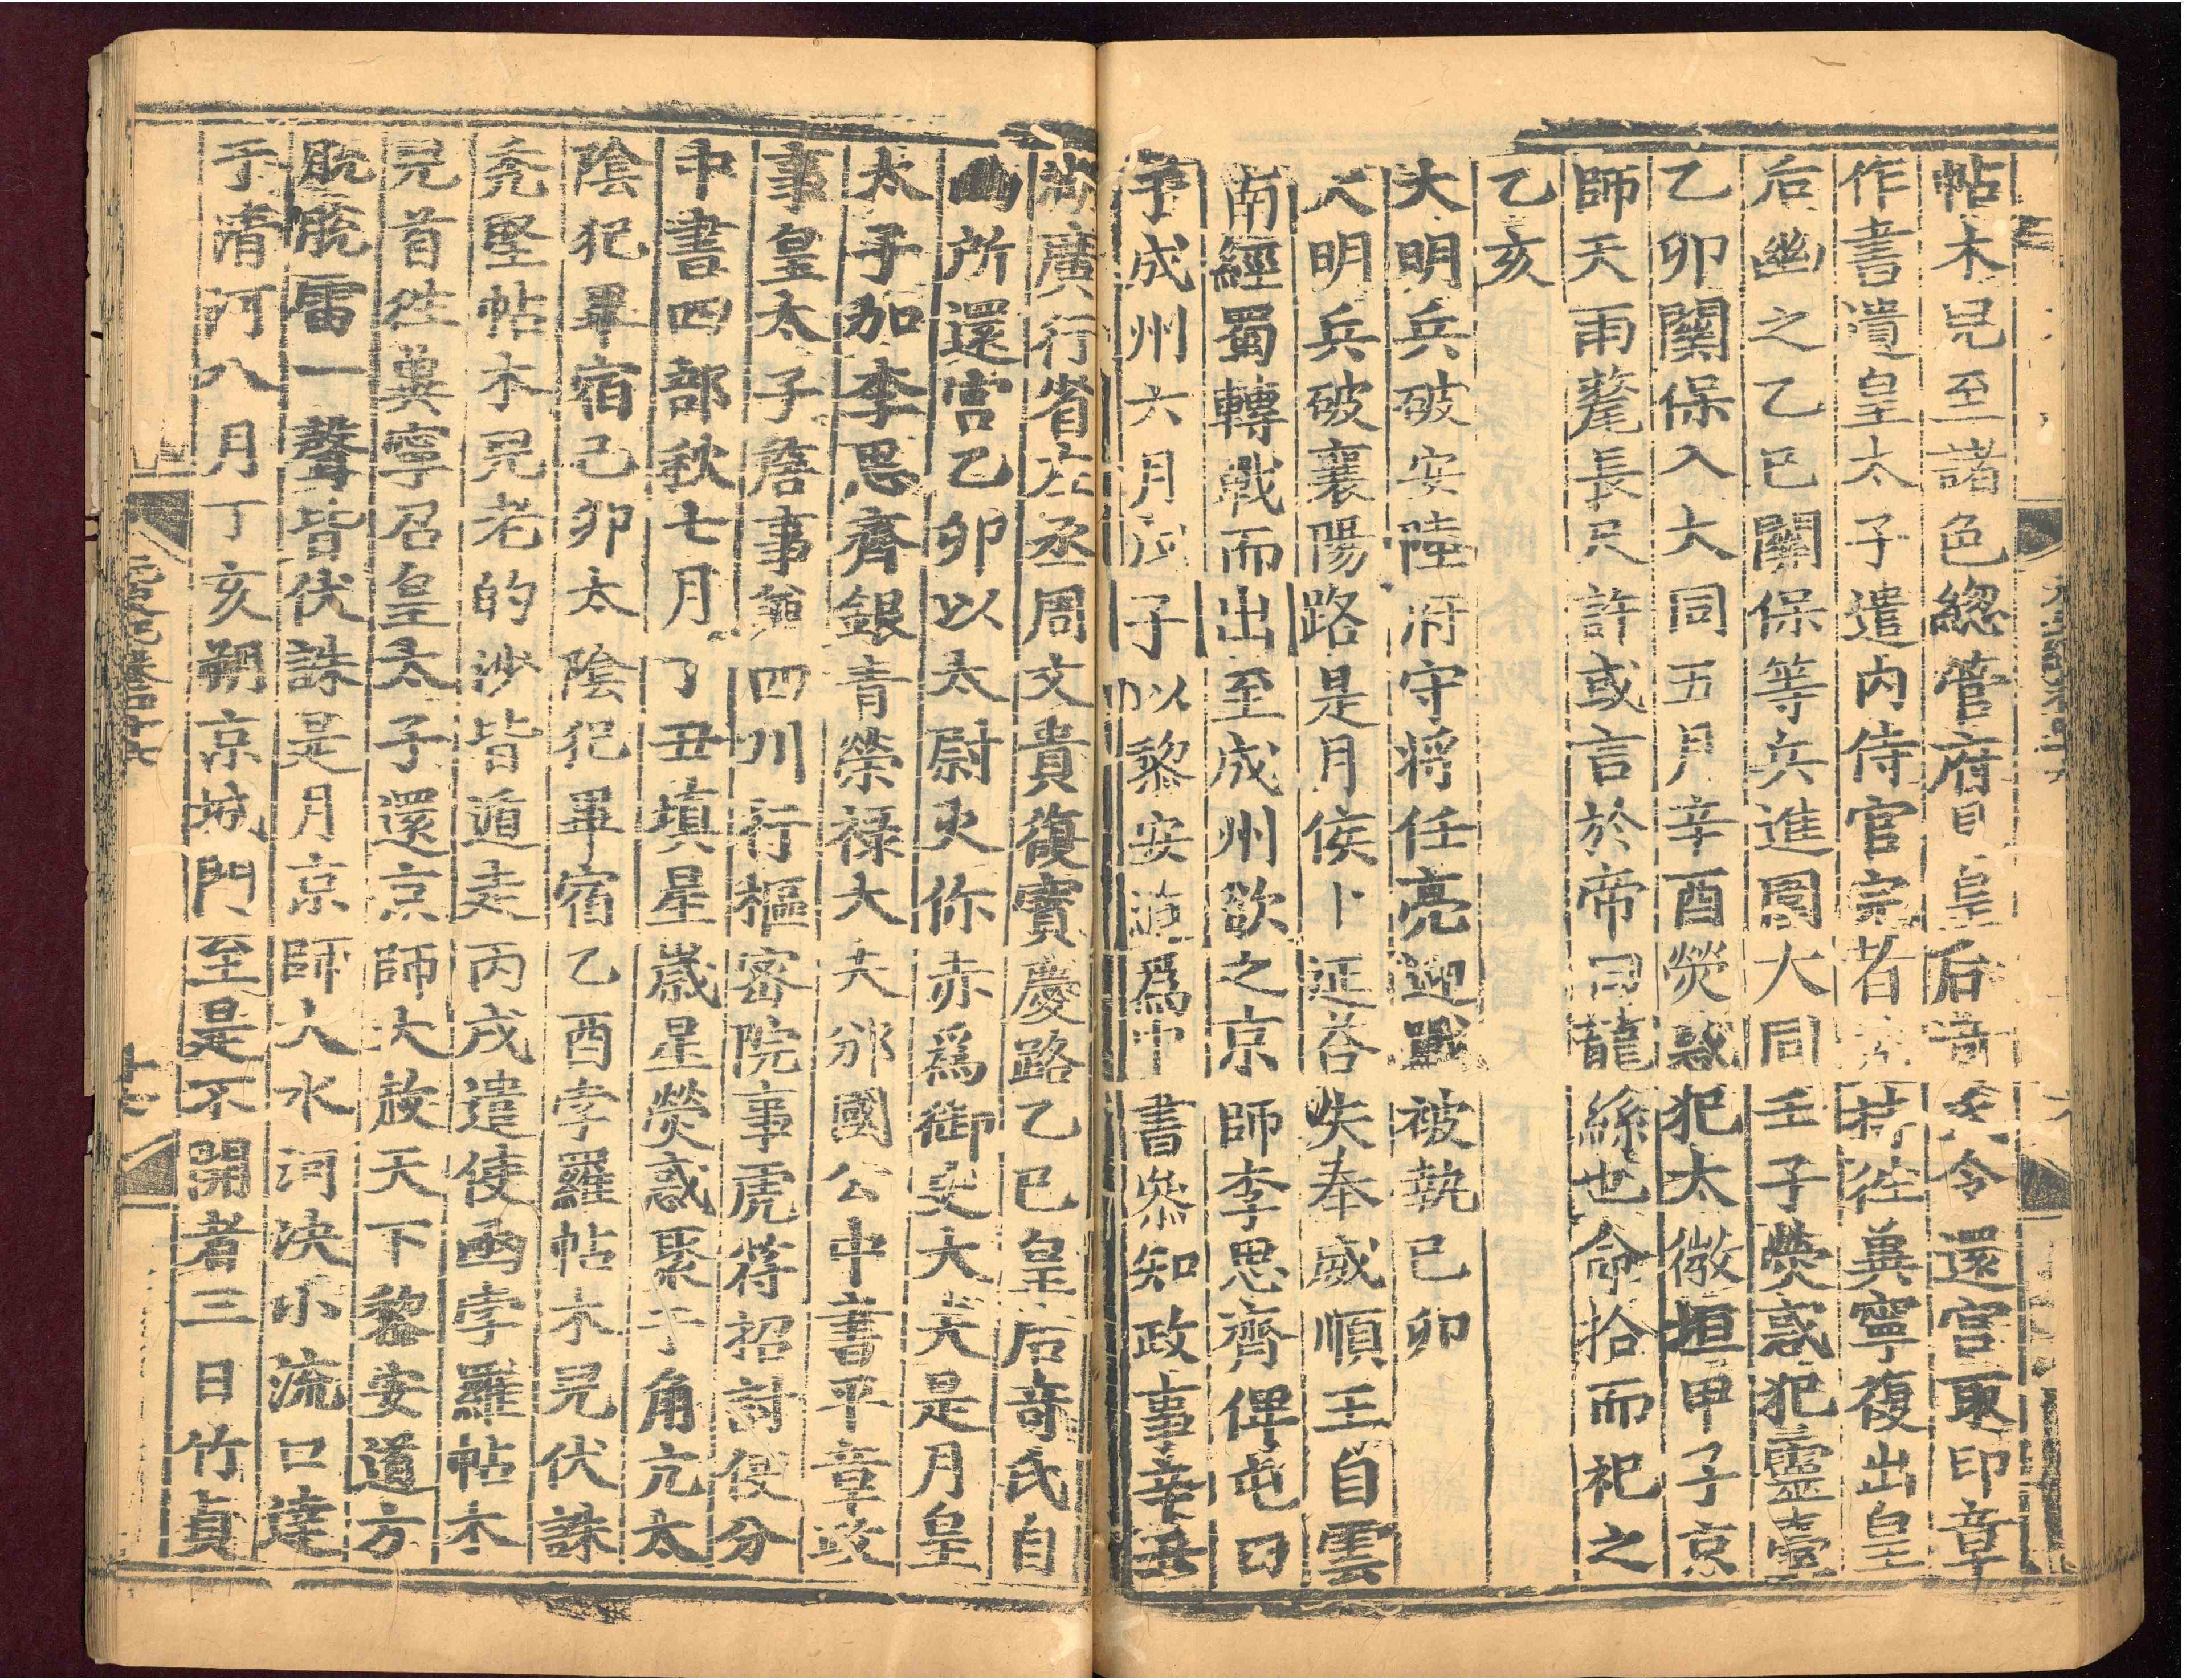 帖木兒至諸色總管府見皇后奇氏令還宮取印章
作書遺皇太子遣內侍官宗者 等往冀寧復出皇
后幽之乙巳關保等兵進圍大同壬子熒惑犯靈臺
乙卯關保入大同五月辛酉熒惑犯太微垣甲子京
師天雨氂長尺許或言於帝曰龍絲也命拾而祀之
乙亥
大明兵破安陸府守將任亮迎戰被執己卯
大明兵破襄陽路是月侯卜延荅失奉威順王自雲
南經蜀轉戰而出至成州欲之京師李思齊俾屯田
于成州六月戊子以黎安道爲中書參知政事辛丑
湖廣行省左丞周文貴復寶慶路乙巳皇后奇氏自
幽所還宮乙卯以太尉火你赤爲御史大夫是月皇
太子加李思齊銀青榮祿大夫邠國公中書平章政
事皇太子詹事兼四川行樞密院事虎符招討使分
中書四部秋七月丁丑填星歲星熒惑聚于角亢太
陰犯畢宿己卯太陰犯畢宿乙酉孛羅帖木兒伏誅
禿堅帖木兒老的沙皆遁走丙戌遣使函孛羅帖木
兒首往冀寧召皇太子還京師大赦天下黎安道方
脫脫雷一聲皆伏誅是月京師大水河決小流口達
于清河八月丁亥朔京城門至是不開者三日竹貞